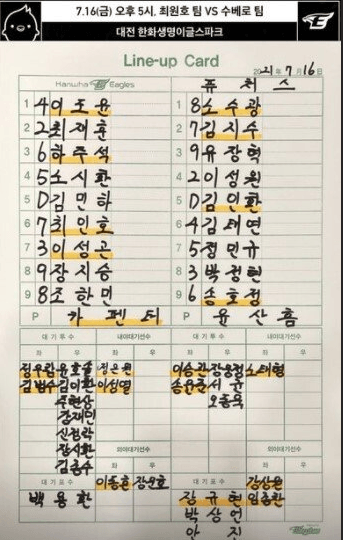 7.16(금) 오후 5시, 최원호 팀 VS 수베로 팀
대전 한화생명이글스파크
Line-up Card
2021년 7월 16일
Hanwha Eagles
퓨처스
1 4 이도윤
2 2 최재훈
3 6 하주석
4 5 노시환
5 D 김민하
6 7 최인호
7 3 이성곤
8 9 장지승
9 8 조한민
P 카펜터
1 8 노수광
2 7 김지수
3 9 유장혁
4 2 이성원
5 D 김인환
6 4 김태연
7 5 정민규
8 3 박정현
9 6 송호정
P 윤산흠
대기투수 내야대기선수 대기투수 내야대기선수
좌 우 좌 우 좌 우 좌 우
정우람 윤호솔 정은원 이승관 장웅정 노태형
김범수 김이환 이성열 송윤준 서균
주현상 오동욱
강재민
신정락
장시환
김종수
외야대기선수 외야대기선수
좌 우 좌 우
이동훈 장운호 강상원
대기포수 대기포수
백용환 장규현 임종찬
박상언
안진